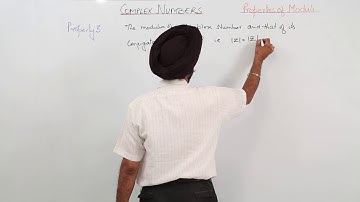 COMPLEX NUMBERS
Properties of Moduli
Property 3
The modulus plex Number and that of its
Conjugat i.e |Z| = |Z̅|